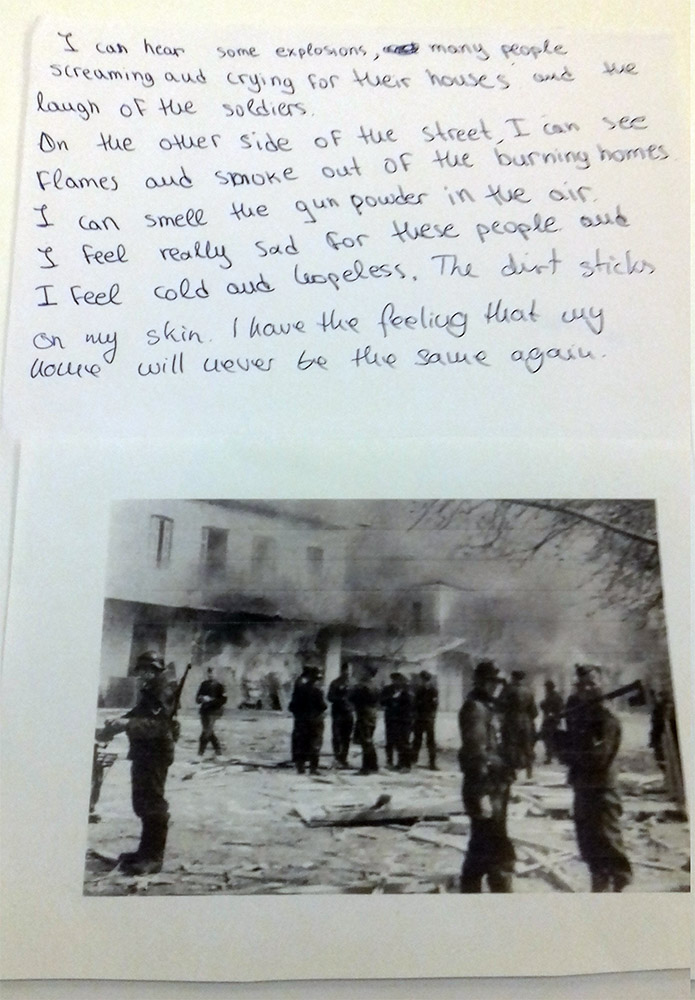 I can hear some explosions, many people
screaming and crying for their houses and the
laugh of the soldiers.
On the other side of the street, I can see
flames and smoke out of the burning homes.
I can smell the gun powder in the air.
I feel really sad for these people and
I feel cold and hopeless. The dirt sticks
on my skin. I have the feeling that my
home will never be the same again.